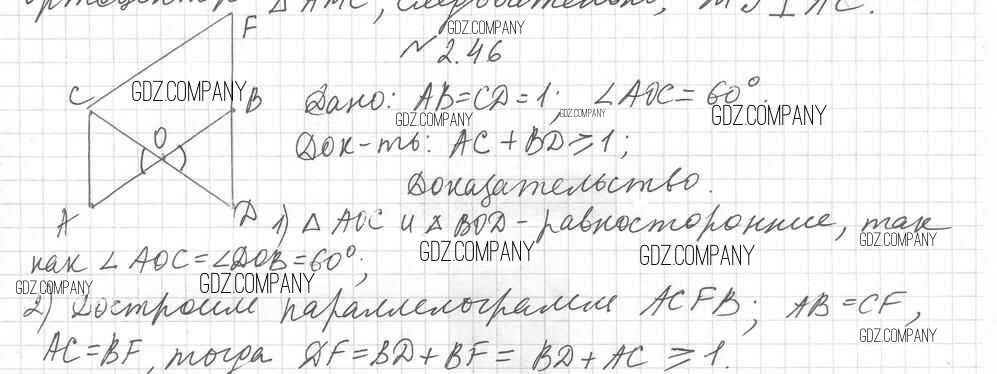 ортоцентр △ AMC, следовательно, MJ ⊥ AC.
GDZ.COMPANY
№ 2.46
F
C
GDZ.COMPANY
B
Дано: AB=CD=1; ∠AOC=60°.
GDZ.COMPANY
GDZ.COMPANY
GDZ.COMPANY
O
Док-ть: AC+BD⩾1;
Доказательство.
A
D
1) △ AOC и △ BOD - равносторонние, так
GDZ.COMPANY
GDZ.COMPANY
GDZ.COMPANY
как ∠AOC=∠DOB=60°;
GDZ.COMPANY
GDZ.COMPANY
2) Достроим параллелограмм ACFB; AB=CF,
GDZ.COMPANY
AC=BF, тогда DF=BD+BF= BD+AC ⩾1.